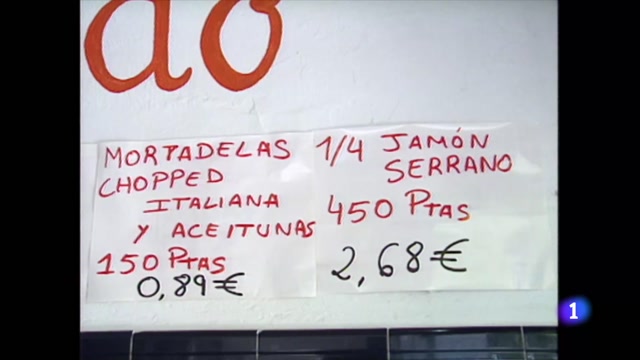 do
MORTADELAS
CHOPPED
ITALIANA
Y ACEITUNAS
150 PTAS
0,89€
1/4 JAMÓN
SERRANO
450 PTAS
2,68€
1